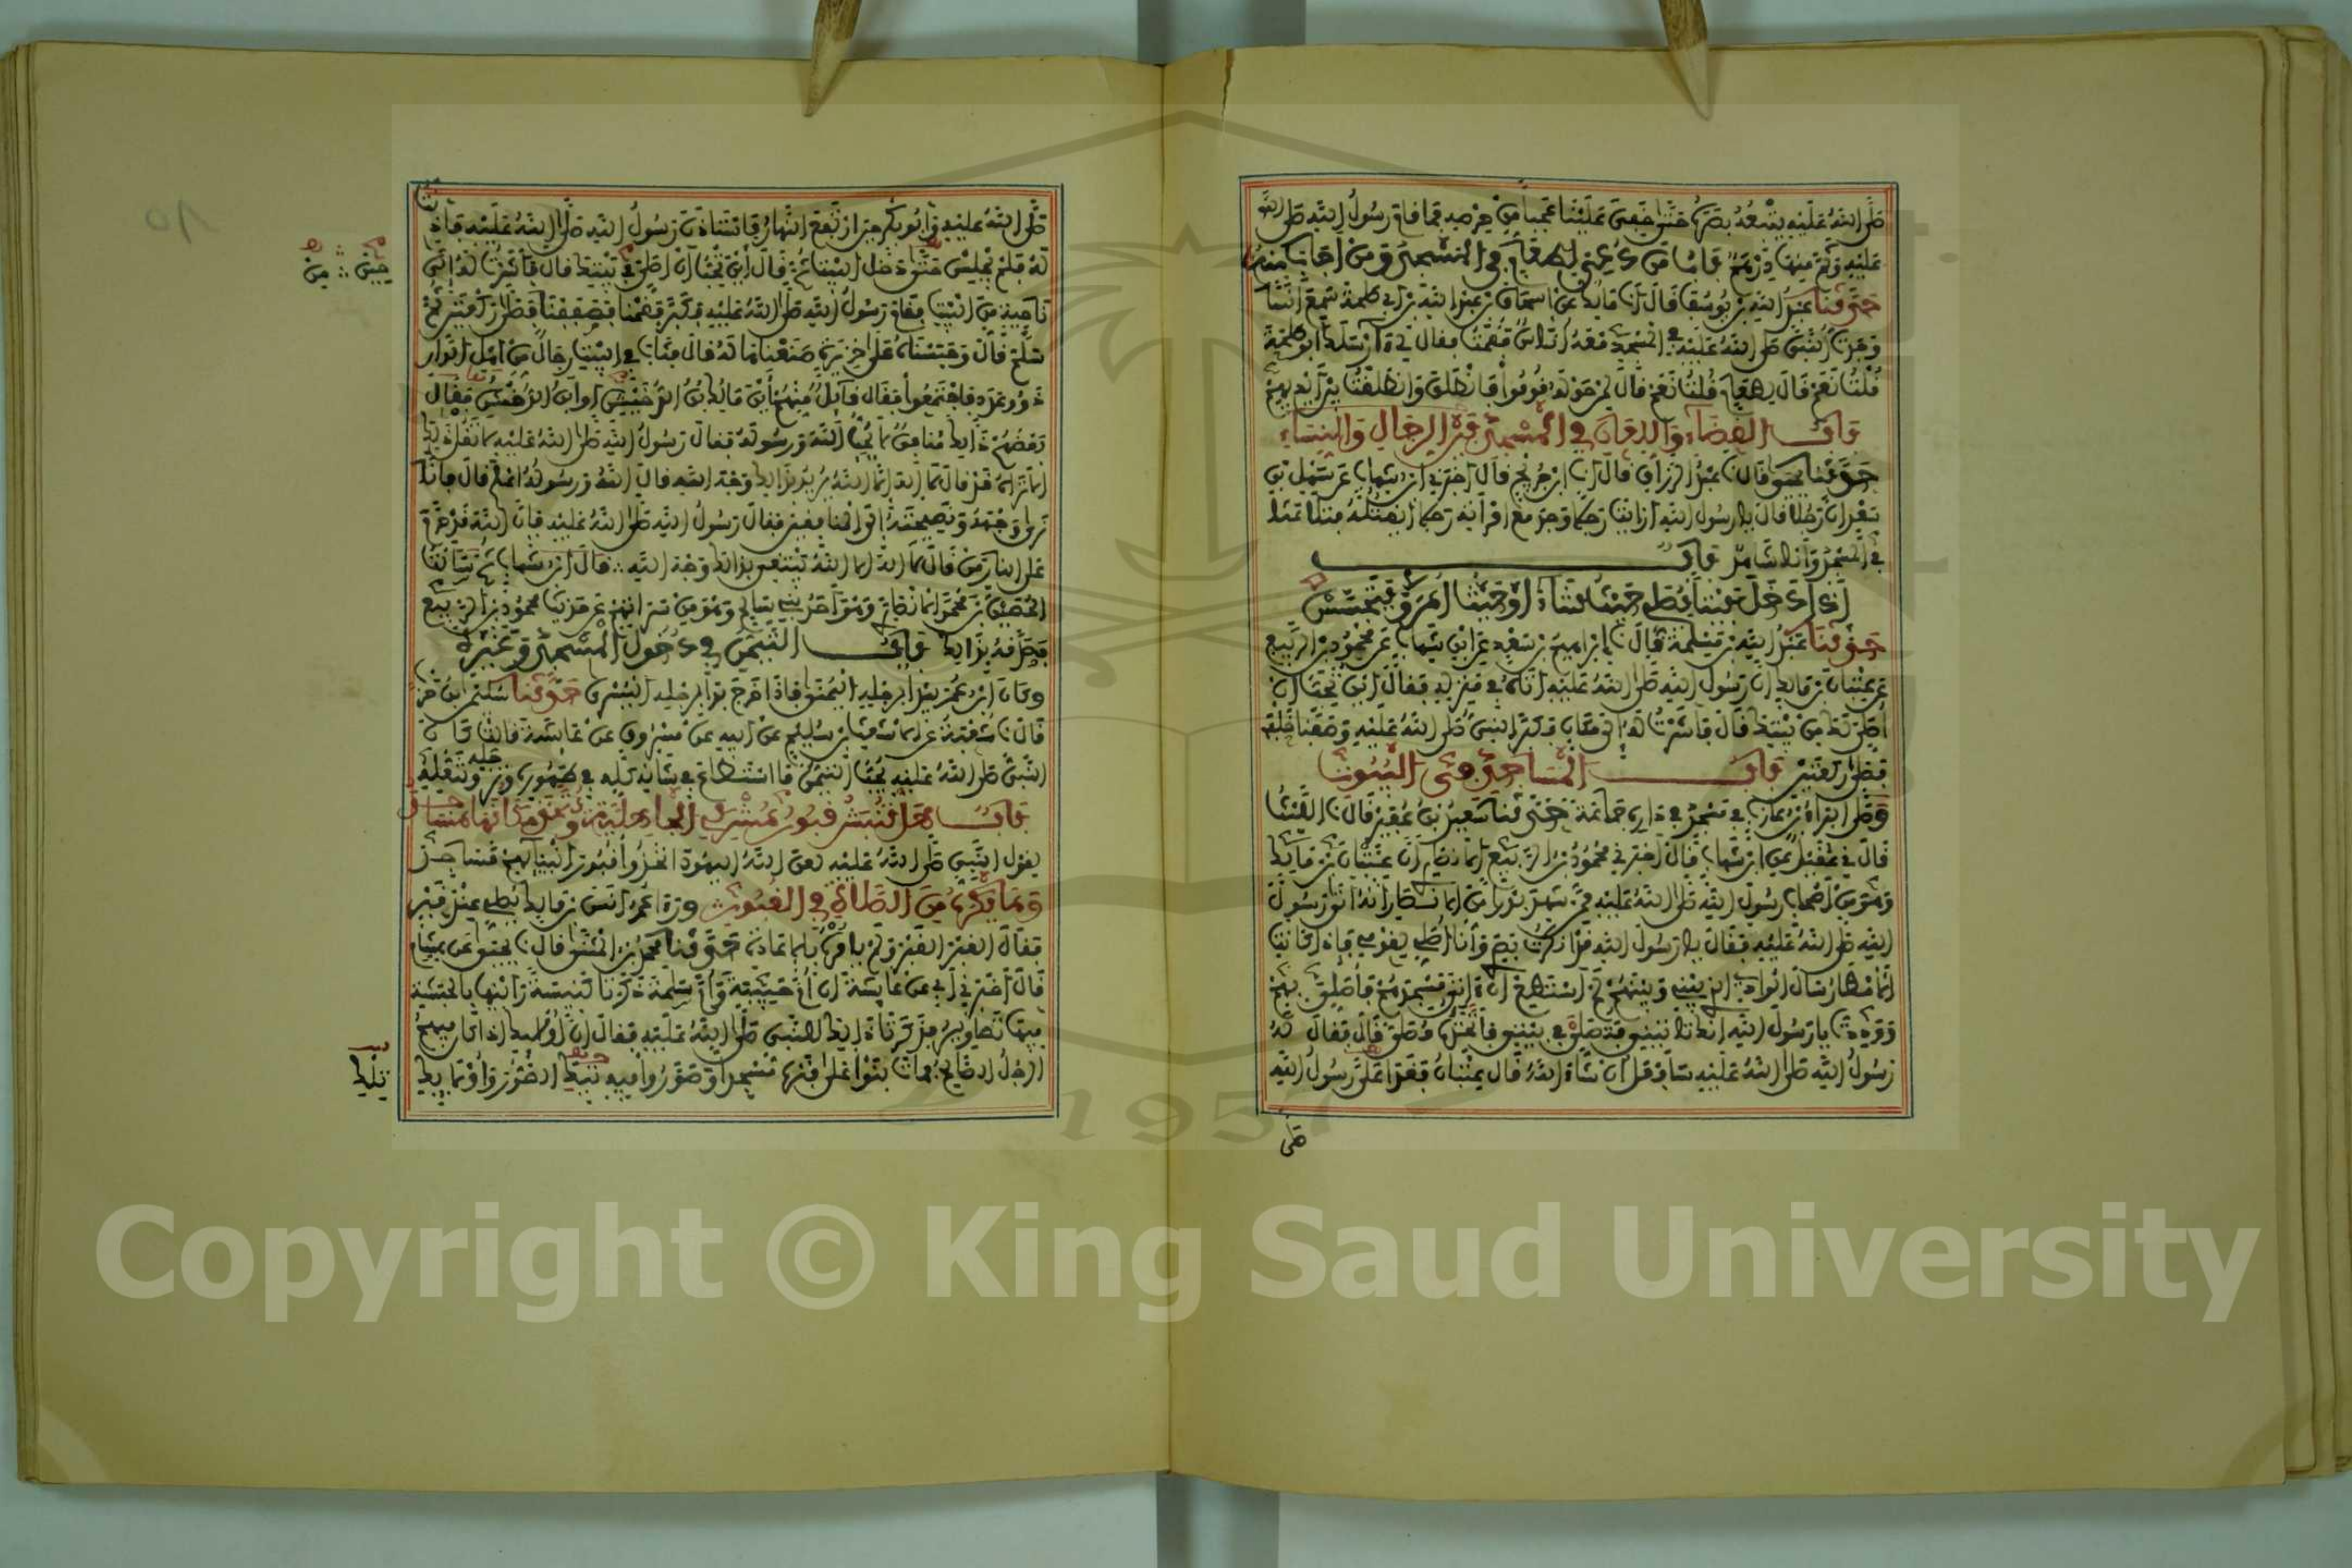 صلى الله عليه يتبعه بصره حتى خفي علينا عجبا من حرصه فما قام رسول الله صلى الله
عليه وثم منها درهم باب من دعي لطعام في المسجد ومن أجاب منه
حدثنا عبد الله بن يوسف قال انا مالك عن اسحاق بن عبد الله بن ابي طلحة سمع انسا
وجدت النبي صلى الله عليه في المسجد معه ناس فقمت فقال لي آرسلك ابو طلحة
قلت نعم قال لطعام قلت نعم قال لمن حوله قوموا فانطلق وانطلقت بين ايديهم
باب القضاء واللعان في المسجد بين الرجال والنساء
حدثنا يحيى قال نا عبد الرزاق قال انا ابن جريج قال اخبرني ابن شهاب عن سهل بن
سعد ان رجلا قال يا رسول الله ارايت رجلا وجد مع امرأته رجلا ايقتله فتلاعنا
في المسجد وانا شاهد باب
اذا دخل بيتا يصلي حيث شاء او حيث امر ولا يتجسس
حدثنا عبد الله بن مسلمة قال نا ابراهيم بن سعد عن ابن شهاب عن محمود بن الربيع
عن عتبان بن مالك ان رسول الله صلى الله عليه اتاه في منزله فقال اين تحب ان
اصلي لك من بيتك قال فاشرت له الى مكان فكبر النبي صلى الله عليه وصففنا خلفه
فصلى ركعتين باب المساجد في البيوت
وصلى البراء بن عازب في مسجد في داره جماعة حدثنا سعيد بن عفير قال نا الليث
قال ني عقيل عن ابن شهاب قال اخبرني محمود بن الربيع الانصاري ان عتبان بن مالك
وهو من اصحاب رسول الله صلى الله عليه ممن شهد بدرا من الانصار انه اتى رسول
الله صلى الله عليه فقال يا رسول الله قد انكرت بصري وأنا أصلي لقومي فإذا كانت
الأمطار سال الوادي الذي بيني وبينهم لم أستطيع ان اتي مسجدهم فأصلي بهم
ووددت يا رسول الله انك تاتيني فتصلي في بيتي فأتخذه مصلى قال فقال له
رسول الله صلى الله عليه سافعل ان شاء الله قال عتبان فغدا علي رسول الله
صلى
صلى الله عليه وأبو بكر حين ارتفع النهار فاستاذن رسول الله صلى الله عليه فاذنت
له فلم يجلس حتى دخل البيت ثم قال أين تحب أن اصلي في بيتك قال فأشرت له الى
حين من
ناحية من البيت فقام رسول الله صلى الله عليه فكبر فقمنا فصففنا فصلى ركعتين ثم
سلم قال وحبسناه على خزيرة صنعناها له قال فثاب في البيت رجال من اهل الدار
ذوو عدد فاجتمعوا فقال قائل منهم أين مالك بن الدخيشن او ابن الدخشن فقال
بعضهم ذلك منافق لا يحب الله ورسوله فقال رسول الله صلى الله عليه لا تقل ذلك
الا تراه قد قال لا اله الا الله يريد بذلك وجه الله قال الله ورسوله اعلم قال فانا
نرى وجهه ونصيحته الى المنافقين فقال رسول الله صلى الله عليه فان الله قد حرم
على النار من قال لا اله الا الله يبتغي بذلك وجه الله قال ابن شهاب ثم سالت
الحصين بن محمد الانصاري وهو احد بني سالم وهو من سراتهم عن حديث محمود بن الربيع
فصدقه بذلك باب التيمن في دخول المسجد وغيره
وكان ابن عمر يبدا برجله اليمنى فاذا خرج بدا برجله اليسرى حدثنا سليمن بن حرب
قال نا شعبة عن الاشعث بن سليم عن ابيه عن مسروق عن عائشة قالت كان
النبي صلى الله عليه يحب التيمن ما استطاع في شانه كله في طهوره وترجله وتنعله
باب هل تنبش قبور مشركي الجاهلية ويتخذ مكانها مساجد
لقول النبي صلى الله عليه لعن الله اليهود اتخذوا قبور انبيائهم مساجد
وما يكره من الصلاة في القبور ورءا عمر انس بن مالك يصلي عند قبر
فقال القبر القبر ولم يامره بالاعادة حدثنا محمد بن المثنى قال نا يحيى عن هشام
قال أخبرني أبي عن عائشة ان ام حبيبة وأم سلمة ذكرتا كنيسة رأينها بالحبشة
فيها تصاوير فذكرتا ذلك للنبي صلى الله عليه فقال ان أولئك اذا كان فيهم
الرجل الصالح فمات بنوا على قبره مسجدا وصوروا فيه تيك الصور وأولئك
تلك